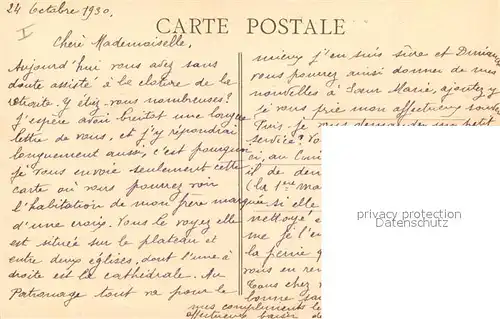 24 Octobre 1930.
I
CARTE POSTALE
Chère Mademoiselle,
Aujourd'hui vous avez sans
doute assisté à la cloture de la
retraite. Y étiez-vous nombreuses?
J'espère avoir bientôt une longue
lettre de vous, et j'y répondrai
longuement aussi, c'est pourquoi
je vous envoie seulement cette
carte où vous pourrez voir
l'habitation de mon frère marquée
d'une croix. Vous le voyez elle
est située sur le plateau et
entre deux églises, dont l'une à
droite est la cathédrale. Au
Patronage tout va pour le
mieux j'en suis sûre et
vous pourrez ainsi donner de mes
nouvelles à Sœur Marie, ajoutez-y
je vous prie mon affectueux
Puis-je vous demander un petit
service?
ci, au
il de
(la 1ère
si elle
nettoyé
me je l'
la
vous en
chez
bonne
mes compliments
affectueux baiser
privacy protection
Datenschutz